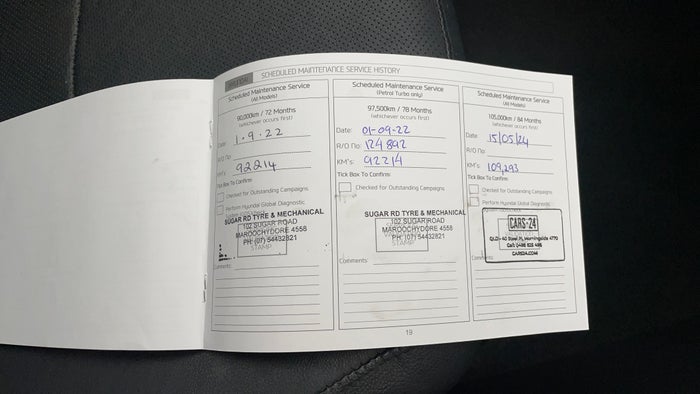 SCHEDULED MAINTENANCE SERVICE HISTORY
Scheduled Maintenance Service
(All Models)
90,000km / 72 Months
(whichever occurs first)
Date 1.9.22
R/O No
KM's 92214
Tick Box To Confirm:
Checked for Outstanding Campaigns
Perform Hyundai Global Diagnostic
SUGAR RD TYRE & MECHANICAL
102 SUGAR ROAD
MAROOCHYDORE 4558
PH: (07) 54432821
STAMP
Comments:
Scheduled Maintenance Service
(Petrol Turbo only)
97,500km / 78 Months
(whichever occurs first)
Date: 01-09-22
R/O No: 124892
KM's: 92214
Tick Box To Confirm:
Checked for Outstanding Campaigns
SUGAR RD TYRE & MECHANICAL
102 SUGAR ROAD
MAROOCHYDORE 4558
PH: (07) 54432821
STAMP
Comments
Scheduled Maintenance Service
(All Models)
105,000km / 84 Months
(whichever occurs first)
Date 15/05/24
R/O No
KM's: 109,293
Tick Box To Confirm:
Checked for Outstanding Campaigns
Perform Hyundai Global Diagnostic
CARS-24
QLD - 40 Steel Pl, Morningside 4770
CARS24.COM
19